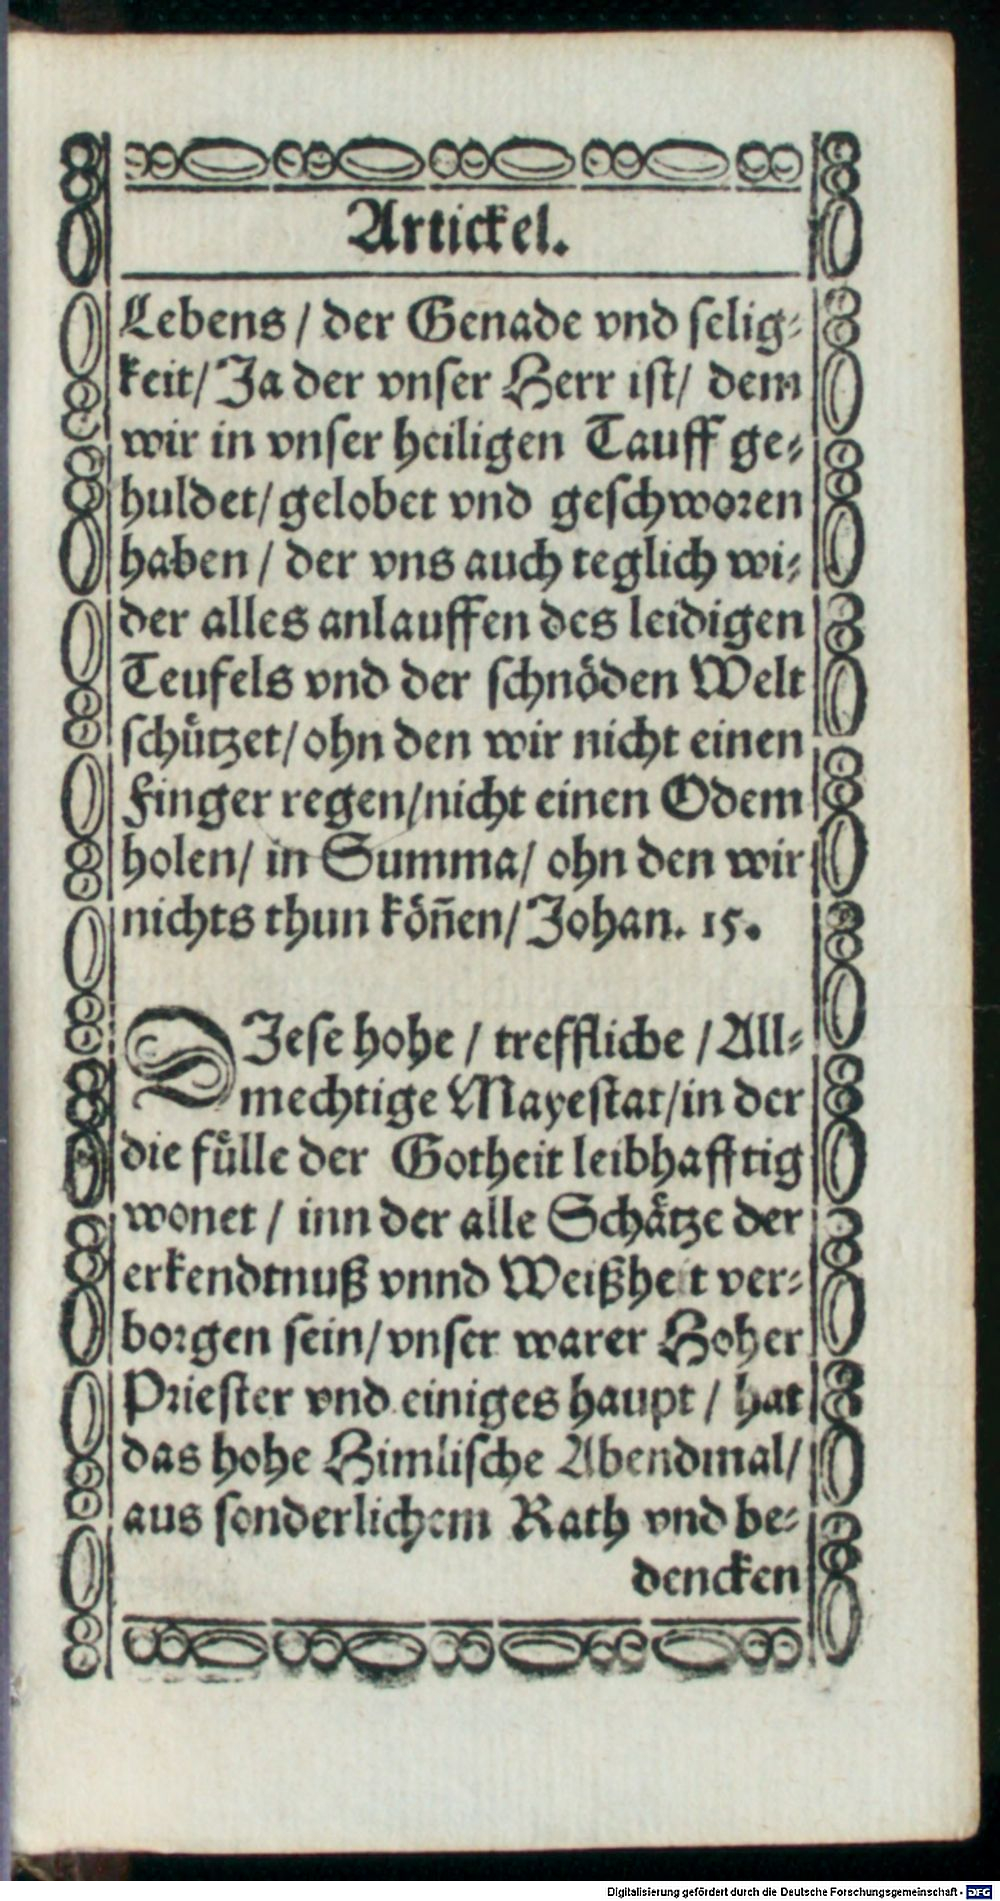 Artickel.
Lebens / der Genade vnd selig⸗
keit/ Ja der vnser Herr ist/ dem
wir in vnser heiligen Tauff ge⸗
huldet/ gelobet vnd geschworen
haben / der vns auch teglich wi⸗
der alles anlauffen des leidigen
Teufels vnd der schnöden Welt
schützet/ ohn den wir nicht einen
Finger regen/nicht einen Odem
holen/ in Summa/ ohn den wir
nichts thun köñen/ Johan. 15.
DIese hohe / treffliche / All⸗
mechtige Mayestat/in der
die fülle der Gotheit leibhafftig
wonet / inn der alle Schätze der
erkendtnuß vnnd Weißheit ver⸗
borgen sein/ vnser warer Hoher
Priester vnd einiges haupt / hat
das hohe Himlische Abendmal/
aus sonderlichem Rath vnd be⸗
dencken
Digitalisierung gefördert durch die Deutsche Forschungsgemeinschaft - DFG